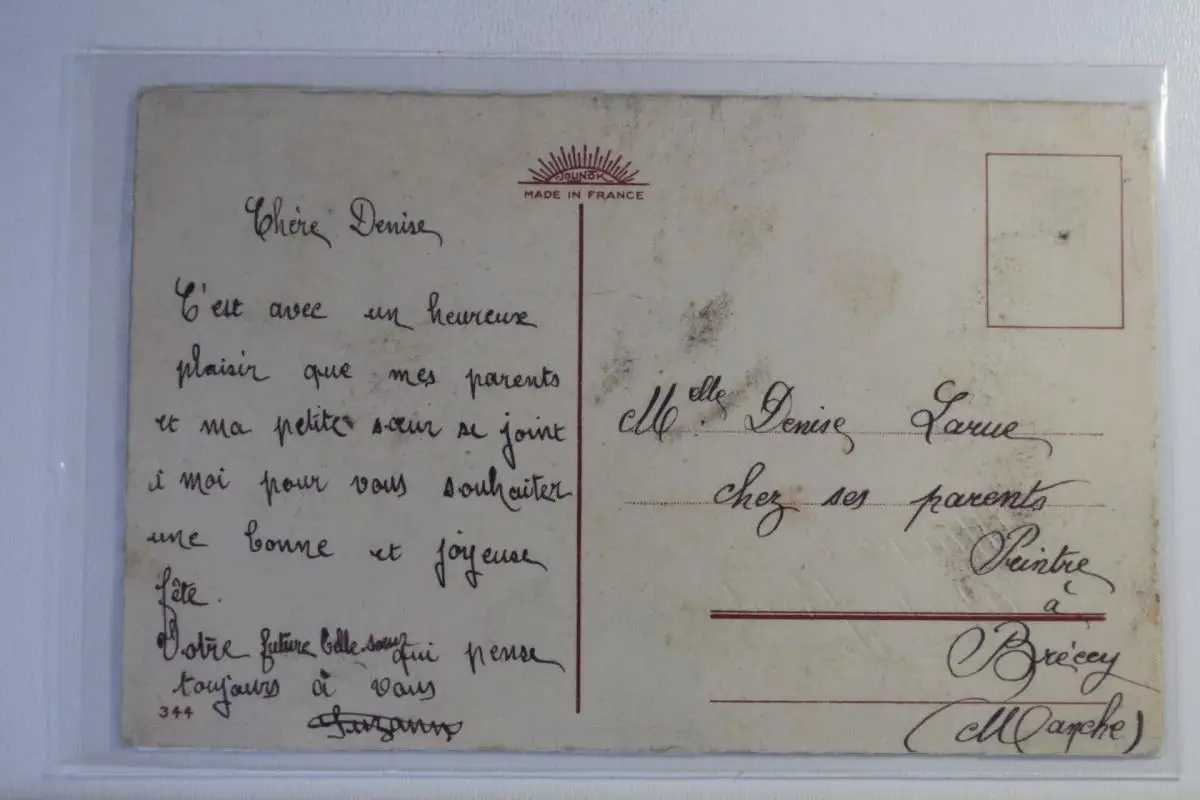 JOUNOK
MADE IN FRANCE
Chère Denise
C'est avec un heureux
plaisir que mes parents
et ma petite sœur se joint
à moi pour vous souhaiter
une bonne et joyeuse
fête.
Votre future belle-sœur qui pense
toujours à vous
Suzanne
344
Melle. Denise Larue
chez ses parents
Peintre
à
Brécey
(Manche)